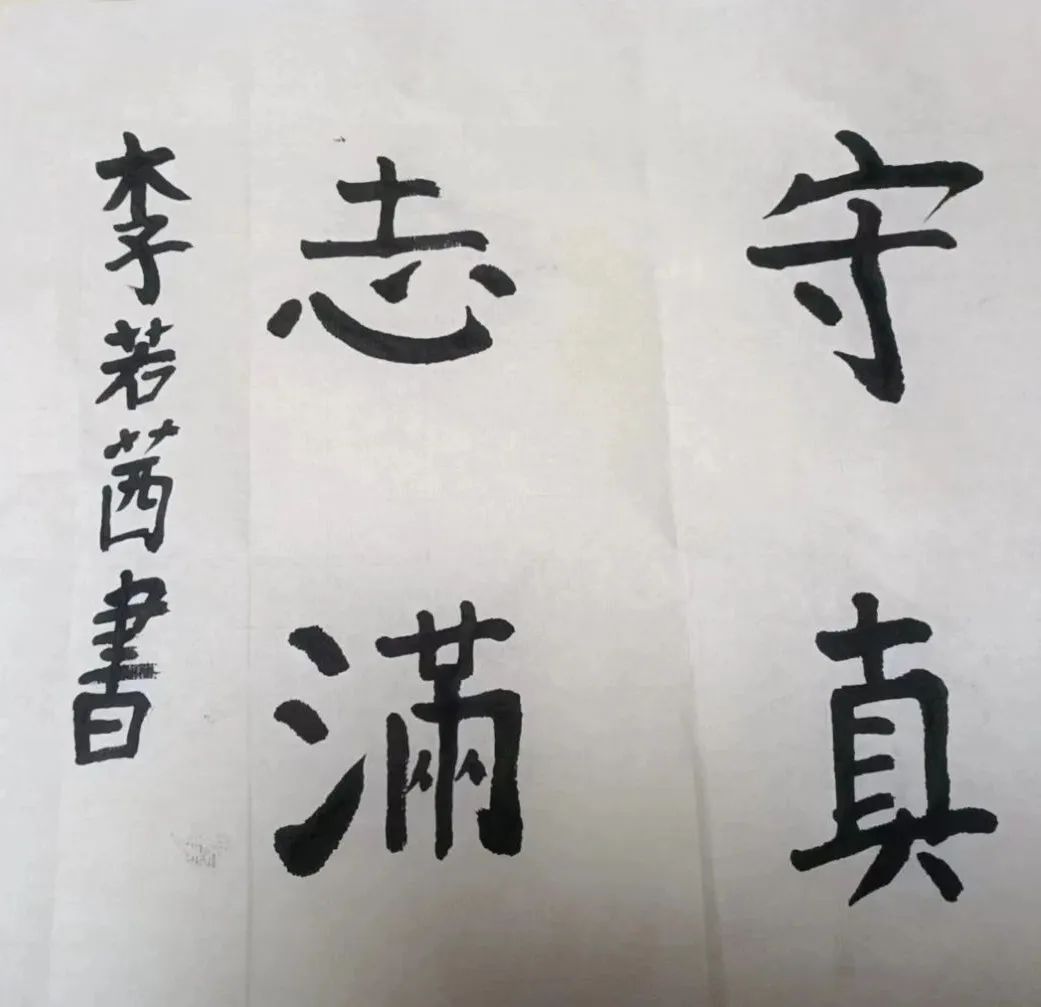 守真
志滿
李若茜書